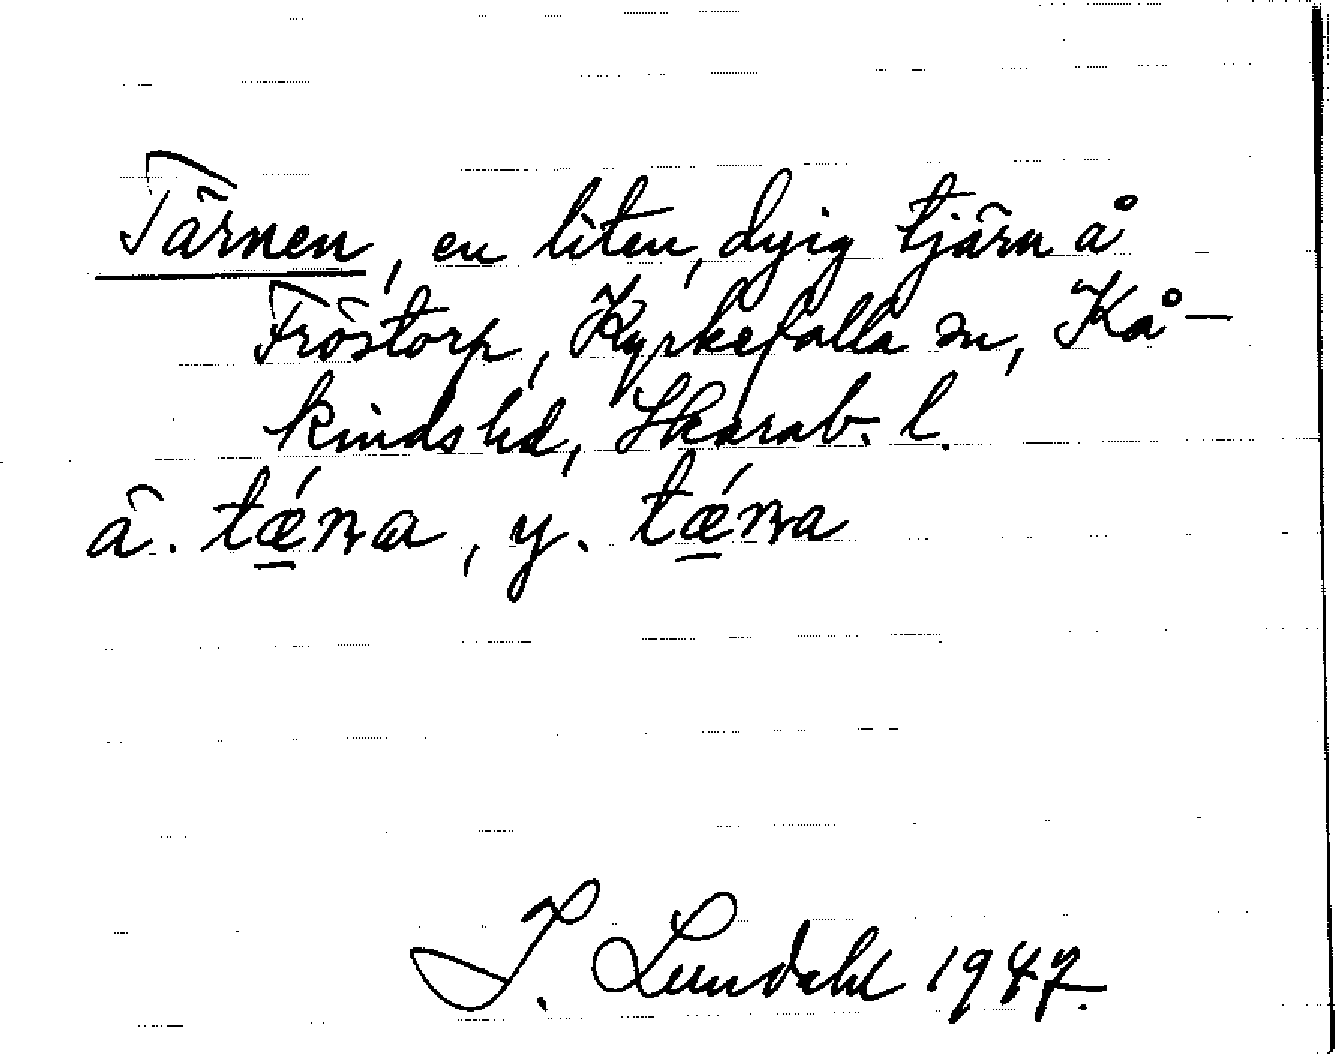 Tärnen, en liten, dyig tjärn å
Fröstorp, Kyrkefalla sn, Kå-
kinds hd, Skarab. l.
ä. tǽ̱na, y. tǽ̱na
I. Lundahl 1947.